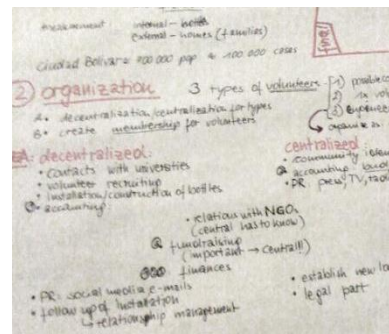 internal - bottles
external - homes (families)
Ciudad Bolívar = 700 000 pop = 100.000 casas
fund
② organization 3 types of volunteers
1)
2) 1x
3)
A. decentralization/centralization for types
B. create membership for volunteers
organize
A: decentralized:
• contacts with universities
• volunteer recruiting
• installation/construction of bottles
• accounting
centralized
• community
accounting
• PR: press, TV,
• relation with NGOs
(central has to know)
fundraising
(important → central!!)
finances
• PR: social media, e-mails
• follow up of installation
↳ relationship management
• establish new
• legal part